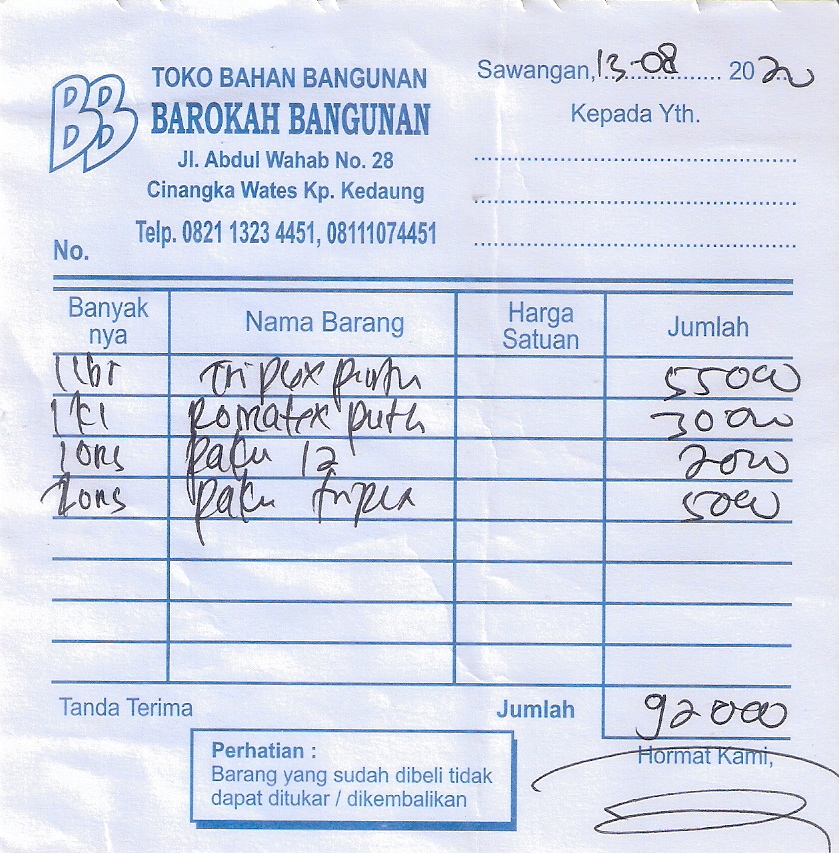 BB
TOKO BAHAN BANGUNAN
BAROKAH BANGUNAN
Jl. Abdul Wahab No. 28
Cinangka Wates Kp. Kedaung
Telp. 0821 1323 4451, 08111074451
No.
Sawangan, 13-08 2020
Kepada Yth.
Banyak nya Nama Barang Harga Satuan Jumlah
1 lbr Triplex putih 55000
1 kl Romatex putih 30000
1 ons paku 12 2000
ons paku triplex 5000
Tanda Terima Jumlah 92000
Perhatian :
Barang yang sudah dibeli tidak
dapat ditukar / dikembalikan
Hormat Kami,